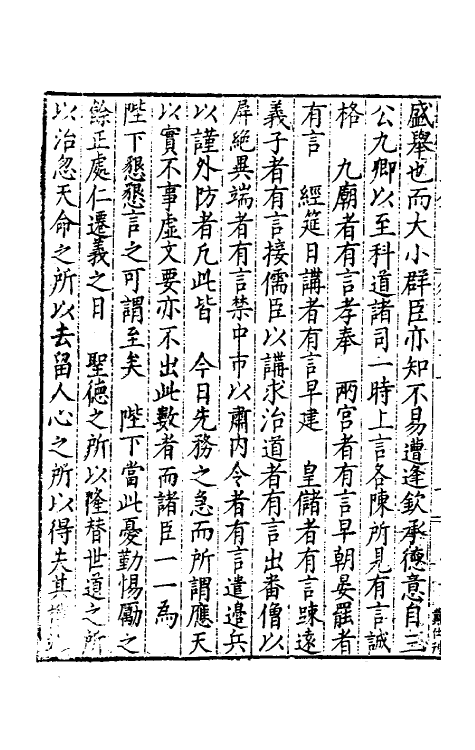 盛舉也而大小群臣亦知不易遭逢欽承德意自三
公九卿以至科道諸司一時上言各陳所見有言誠
格　九廟者有言孝奉　兩宮者有言早朝晏罷者
有言　經筵日講者有言早建　皇儲者有言踈遠
義子者有言接儒臣以講求治道者有言出畨僧以
屏絕異端者有言禁中市以肅內令者有言遣邉兵
以謹外防者凡此皆　今日先務之急而所謂應天
以實不事虛文要亦不出此數者而諸臣一一為
陛下懇懇言之可謂至矣　陛下當此憂勤惕勵之
餘正處仁遷義之日　聖德之所以隆替世道之所
以治忽天命之所以去留人心之所以得失其